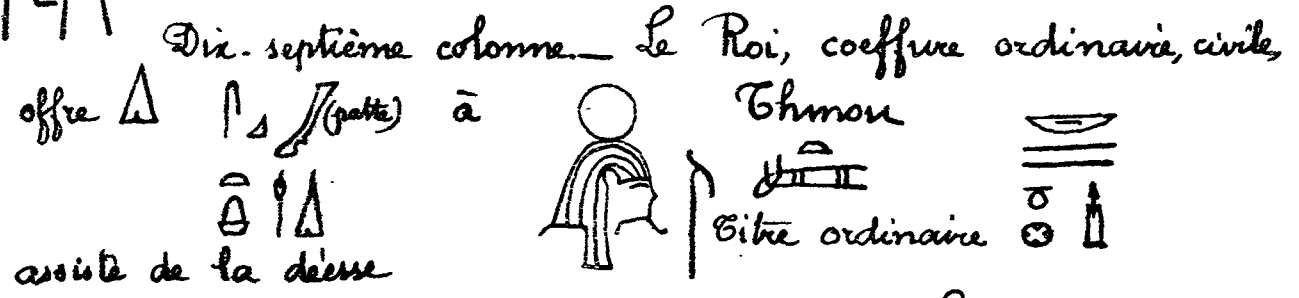 Dix-septième colonne.— Le Roi, coeffure ordinaire, civile,
offre (patte) à Thmou
Titre ordinaire
assisté de la déesse